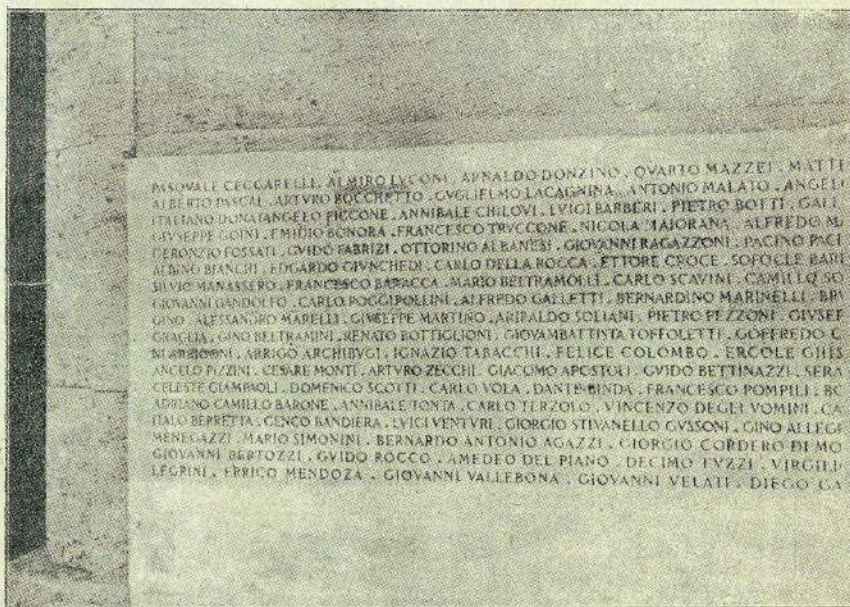 PASQVALE CECCARELLI . ALMIRO LVCONI . ARNALDO DONZINO . QVARTO MAZZEI . MATTE
ALBERTO PASCAL . ARTVRO BOCCHETTO . GVGLIELMO LACAGNINA . ANTONIO MALATO . ANGEL
ITALIANO DONATANGELO PICCONE . ANNIBALE CHILOVI . LVIGI BARBERI . PIETRO BOTTI . GALL
GIVSEPPE GOINI . EMIDIO BONORA . FRANCESCO TRVCCONE . NICOLA MAIORANA . ALFREDO MA
DERONZIO FOSSATI . GVIDO FABRIZI . OTTORINO ALBANESI . GIOVANNI RAGAZZONI . PACINO PACI
ALBINO BIANCHI . EDGARDO GIVNCHEDI . CARLO DELLA ROCCA . ETTORE CROCE . SOFOCLE BARI
SILVIO MANASSERO . FRANCESCO BARACCA . MARIO BELTRAMOLLI . CARLO SCAVINI . CAMILLO SO
GIOVANNI GANDOLFO . CARLO POGGIPOLLINI . ALFREDO GALLETTI . BERNARDINO MARINELLI . BRV
GINO ALESSANDRO MARELLI . GIVSEPPE MARTINO . ARIBALDO SOLIANI . PIETRO PEZZONI . GIVSEP
GRAGLIA . GINO BELTRAMINI . RENATO BOTTIGLIONI . GIOVAMBATTISTA TOFFOLETTI . GOFFREDO C
ARRIGO ARCHIBVGI . IGNAZIO TABACCHI . FELICE COLOMBO . ERCOLE GHES
ANGELO PIZZINI . CESARE MONTI . ARTVRO ZECCHI . GIACOMO APOSTOLI . GVIDO BETTINAZZI . SERA
CELESTE GIAMPAOLI . DOMENICO SCOTTI . CARLO VOLA . DANTE BINDA . FRANCESCO POMPILI . BO
ADRIANO CAMILLO BARONE . ANNIBALE TONTA . CARLO TERZOLO . VINCENZO DEGLI VOMINI . CA
ITALO BERRETTA . GENCO BANDIERA . LVIGI VENTVRI . GIORGIO STIVANELLO GVSSONI . GINO ALLEGR
MENEGAZZI . MARIO SIMONINI . BERNARDO ANTONIO AGAZZI . GIORGIO CORDERO DI MO
GIOVANNI BERTOZZI . GVIDO ROCCO . AMEDEO DEL PIANO . DECIMO TVZZI . VIRGILI
LEGRINI . ERRICO MENDOZA . GIOVANNI VALLEBONA . GIOVANNI VELATI . DIEGO GA